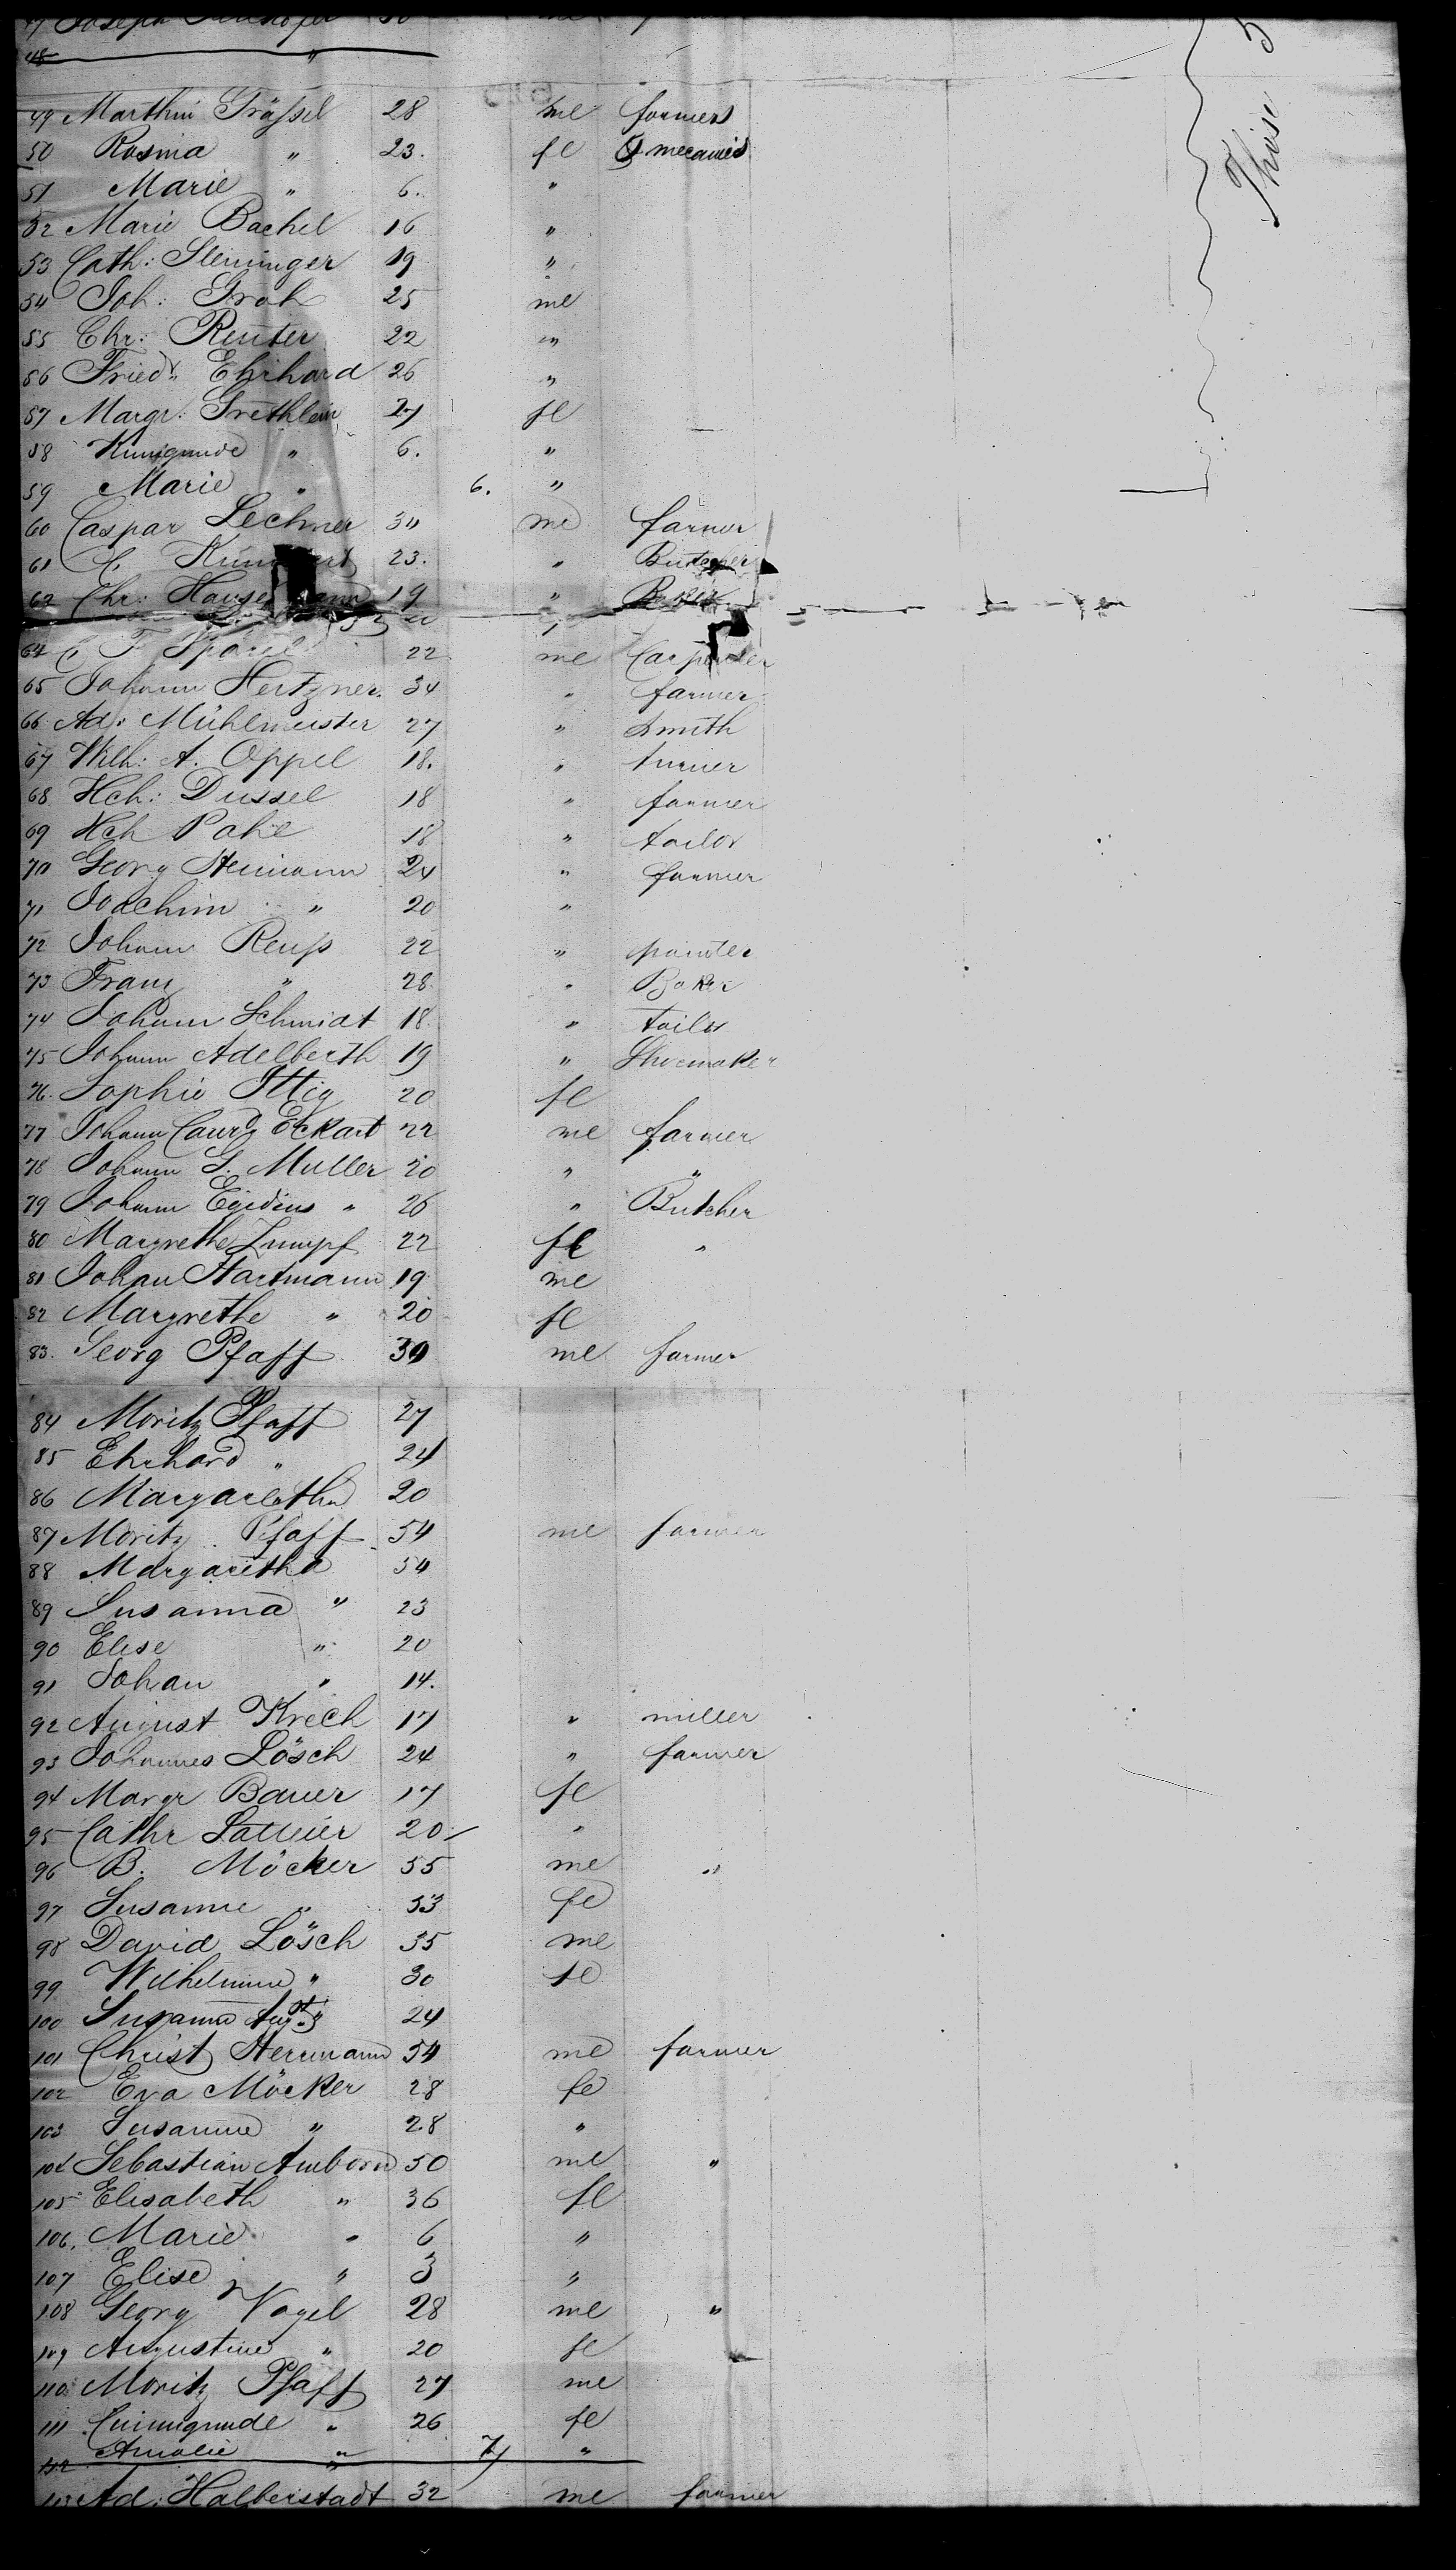 47 Joseph 30 me
48 "
49 Marthin Gräfsel 28 me farmers
50 Rosina " 23. fe & mecanics
51 Marie " 6. "
52 Marie Bachel 16 "
53 Cath: Steininger 19 "
54 Joh: Groh 25 me
55 Chr: Reuter 22 "
56 Friedr. Ehrhard 26 "
57 Margr: Grethlein 27 fe
58 Kunigunde " 6. "
59 Marie " 6. "
60 Caspar Lechner 34 me farmer
61 C. 23. " Butcher
62 Chr: 19 " Baker
64 C F 22 me Carpenter
65 Johann Hertzner. 34 " farmer
66 Ad: Mühlmeister 27 " Smith
67 Wilh: A. Oppel 18. " turner
68 Hch: Dussel 18 " farmer
69 Hch Pohl 18 " tailor
70 Georg Heimann 24 " farmer
71 Joachim " 20 "
72 Johann Reufs 22 " painter
73 Franz " 28 " Baker
74 Johann Schmidt 18 " Tailor
75 Johann Adelberth 19 " Shoemaker
76. Sophie Ittig 20 fe
77 Johann Eckart 22 me farmer
78 Johann G. Muller 20 " "
79 Johann Egidius " 26 " Butcher
80 Margrethe Zumpf 22 fe "
81 Johan Hartmann 19 me
82 Margrethe " 20 fe
83. Georg Pfaff 39 me farmer
84 Moritz Pfaff 27
85 Ehrhard " 24
86 Margaretha 20
87 Moritz Pfaff 54 me farmer
88 Margaretha 54
89 Susanna " 23
90 Elise " 20
91 Johan " 14.
92 August Krech 17 " miller
93 Johannes Lösch 24 " farmer
94 Margr Bauer 17 fe
95 Cathr 20 "
96 B. Möcker 55 me "
97 Susanne " 53 fe
98 David Lösch 35 me
99 Wilhelmine " 30 fe
100 Susanna Augst. " 24
101 Christ Herrmann 54 me farmer
102 Eva Möcker 28 fe
103 Susanne " 28 "
104 Sebastian Amborn 50 me "
105 Elisabeth " 36 fe
106. Marie " 6 "
107 Elise " 3 "
108 Georg Vogel 28 me "
109 Augustine " 20 fe
110 Moritz Pfaff 27 me
111 Cunnigunde " 26 fe
112 Amalie " "
113 Ad: Halberstadt 32 me farmer